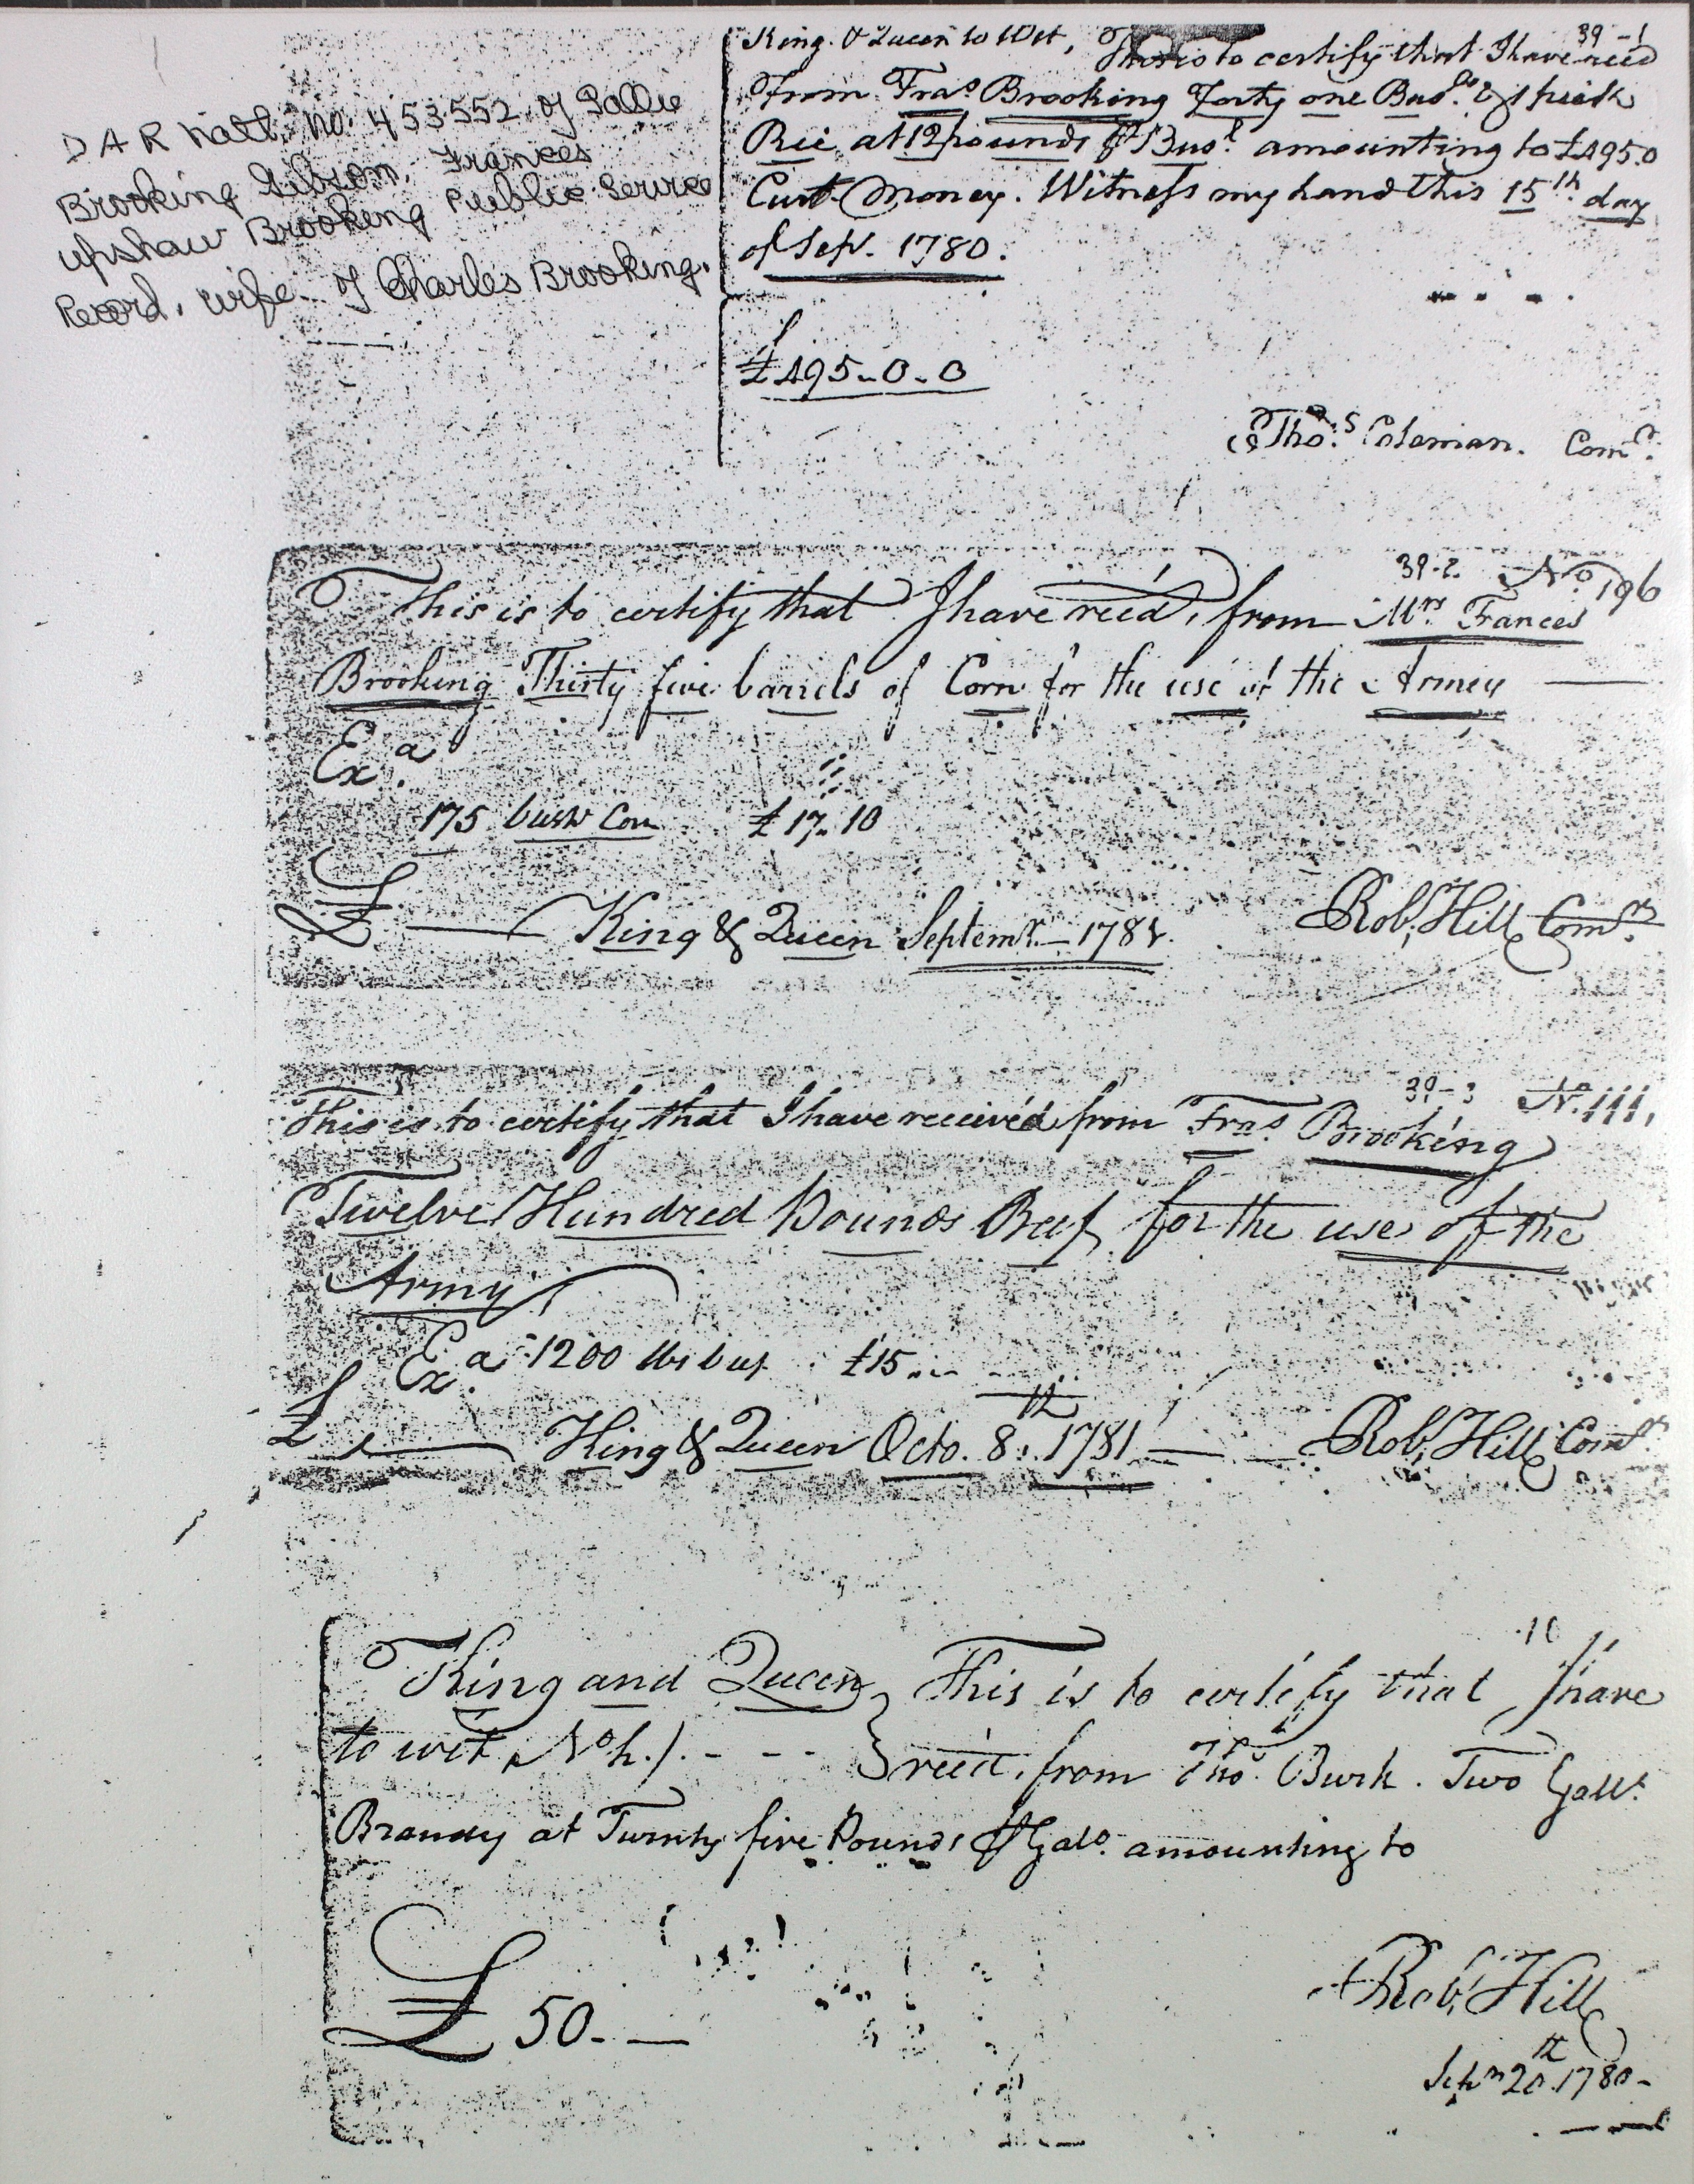 D A R Natl. no. 453552 of Sallie
Brooking Gibson. Frances
Upshaw Brooking Public Service
Record, wife of Charles Brooking.
39-1
King & Queen to Wit, This is to certify that I have recd
From Fras. Brooking Forty one Bus.ls & 1 peck
at 12 pounds Bus.l amounting to £495.0
Curt. Money. Witness my hand this 15th. day
of Sepr. 1780.
£495-0-0
Thos. Coleman. Comr.
39-2. No. 196
This is to certify that I have reed, from Mrs. Frances
Brooking Thirty five barrels of Corn for the use of the Armey
Exa.
175 bush Corn £17.10
King & Queen Septemr. 1781.
Rob. Hill Comr.
39-3 N. 111,
This is to certify that I have received from Fras. Brooking
Twelve Hundred Pounds Beef for the use of the
Army
Exa. 1200 lbs beef £15..-
£ King & Queen Octo. 8th. 1781 Rob. Hill Comr.
King and Queen This is to certify that I have
to wit No. recd. from Tho. Burk. Two Galls.
Brandy at Twenty five Pounds Galo. amounting to
£ 50. —
Rob. Hill
20th 1780-